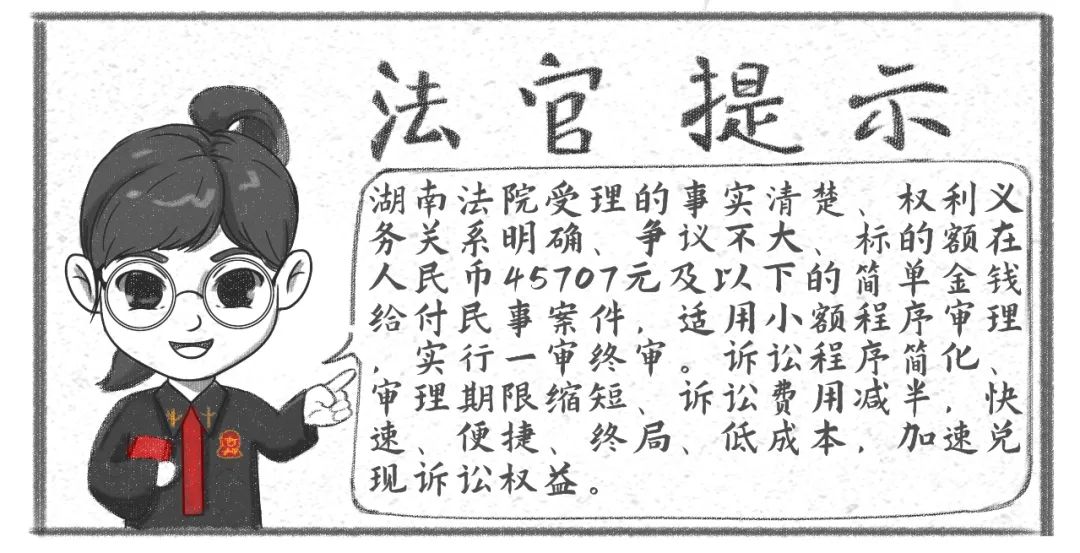 法官提示
湖南法院受理的事实清楚、权利义
务关系明确、争议不大、标的额在
人民币45707元及以下的简单金钱
给付民事案件，适用小额程序审理
，实行一审终审。诉讼程序简化、
审理期限缩短、诉讼费用减半，快
速、便捷、终局、低成本，加速兑
现诉讼权益。